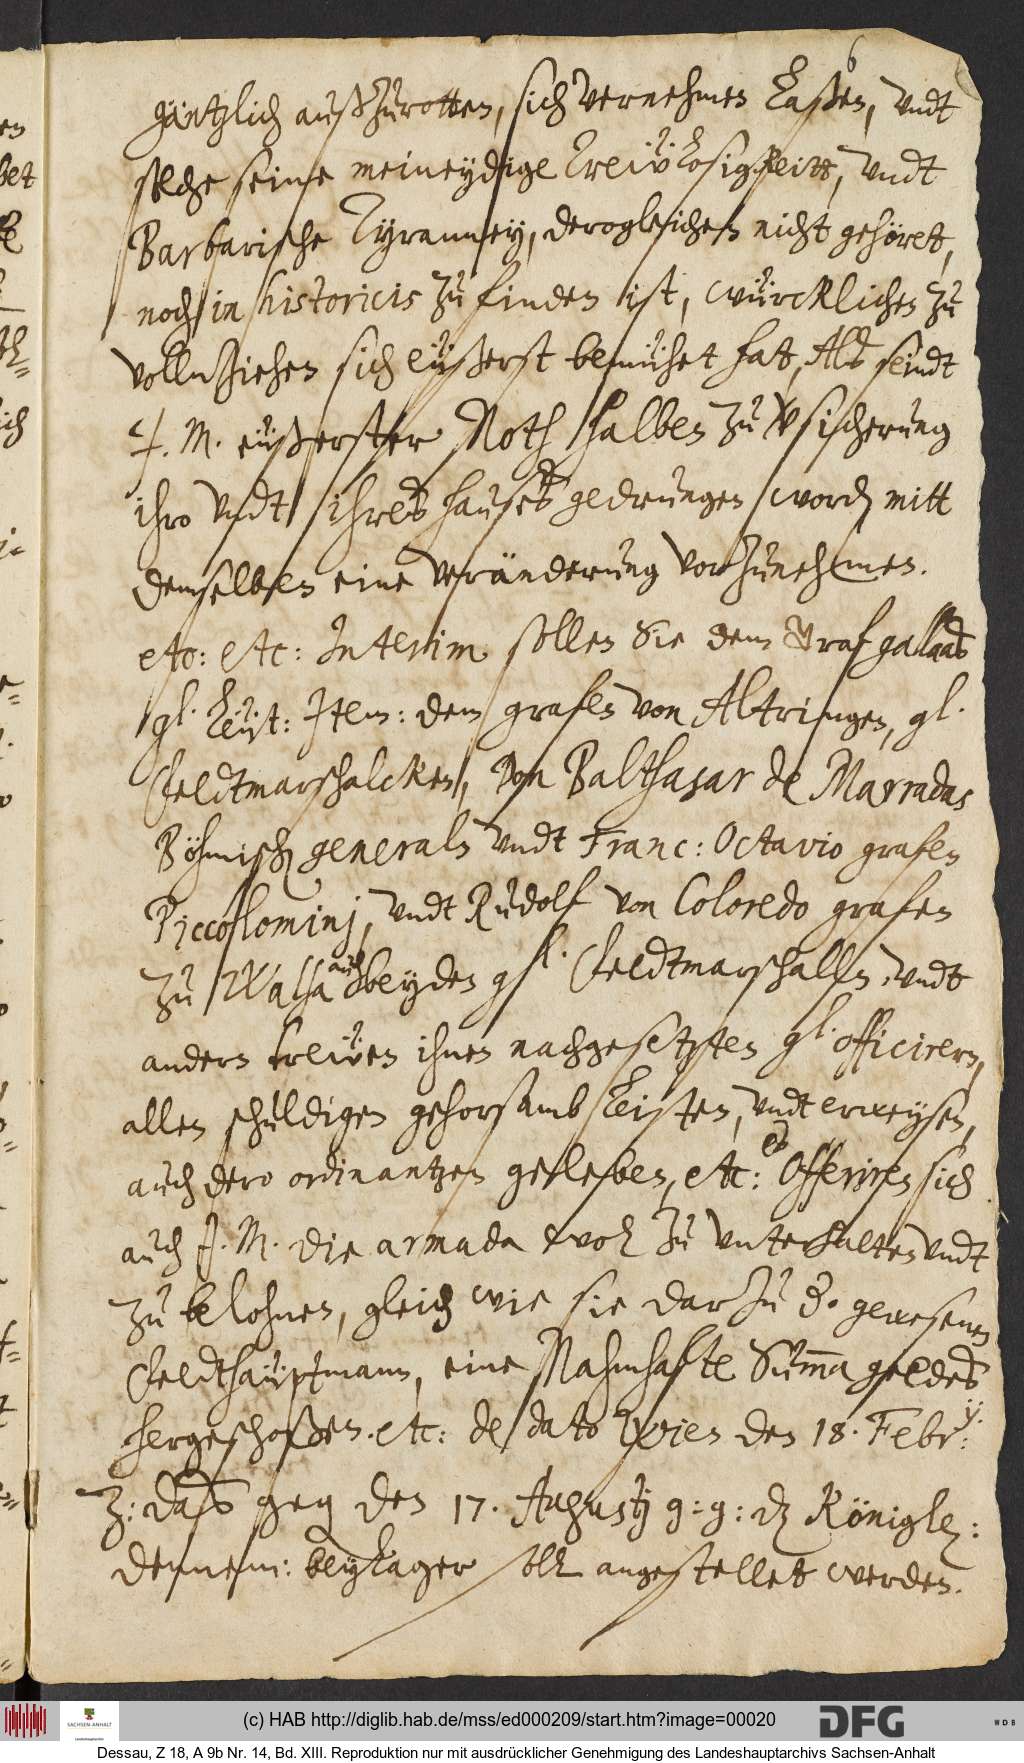 6
gäntzlich außzurotten, sich vernehmen laßen, undt
solche seine meineydige Trewlosigkeitt, undt
Barbarische Tyranney, derogleichen nicht gehöret,
noch in historicis zu finden ist, würcklichen zu
vollnziehen sich eüßerst bemühet hat, Als seindt
I. M. eüßerster Noth halben zu Vsicherung
ihro undt ihres hauses gedrungen word mitt
demselben eine veränderung vorzunehmen.
etc: etc: Interim sollen Sie dem Graf galaas
gl. Leüt: Item: dem grafen von Altringen, gl.
Feldtmarschalcken, Don Balthasar de Marradas
Böhmisch generaln undt Franc: Octavio grafen
Piccolominj, undt Rudolf von Coloredo grafen
zu Walsa auch beyden gl. Feldtmarschalln, undt
andern treüen ihnen nachgesetzten gl. officirern,
allen schuldigen gehorsamb leisten, undt erweysen,
auch dero ordinantzen geleben, etc: Es Offeriren sich
auch I. M. die armada wol zu unterhalten undt
zu belohnen, gleich wie sie darzu d. gewesenen
Feldthauptmann, eine Nahmhafte Summa geldes
hergeschoßen. etc: de dato Wien den 18. Febr: ij.
Z: das geg den 17. Augustj g: g: dz Königl:
dennem: beylager soll angestellet werden.
(c) HAB http://diglib.hab.de/mss/ed000209/start.htm?image=00020
SACHSEN-ANHALT
DFG
WDB
Dessau, Z 18, A 9b Nr. 14, Bd. XIII. Reproduktion nur mit ausdrücklicher Genehmigung des Landeshauptarchivs Sachsen-Anhalt